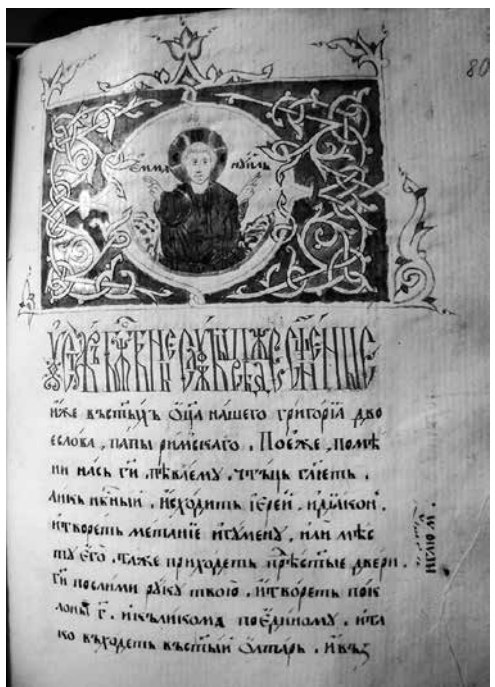 80
ЕММА НУИЛЬ
иже въстыхъ оца нашего григорїа дво
еслова, папы римскаго. Поеже, помѣ
ни нась ги. пѣваему. чтьць глѥть.
ликь нбный. исходить їерей. идїакон.
итвореть метанїе игумену, или мѣс
ту его. таже приходеть прѣстые двери.
ги послими руку твою. итвореть пок
лоны г. икъликома поединому. ита
ко въходеть въстый олтарь. ивъз